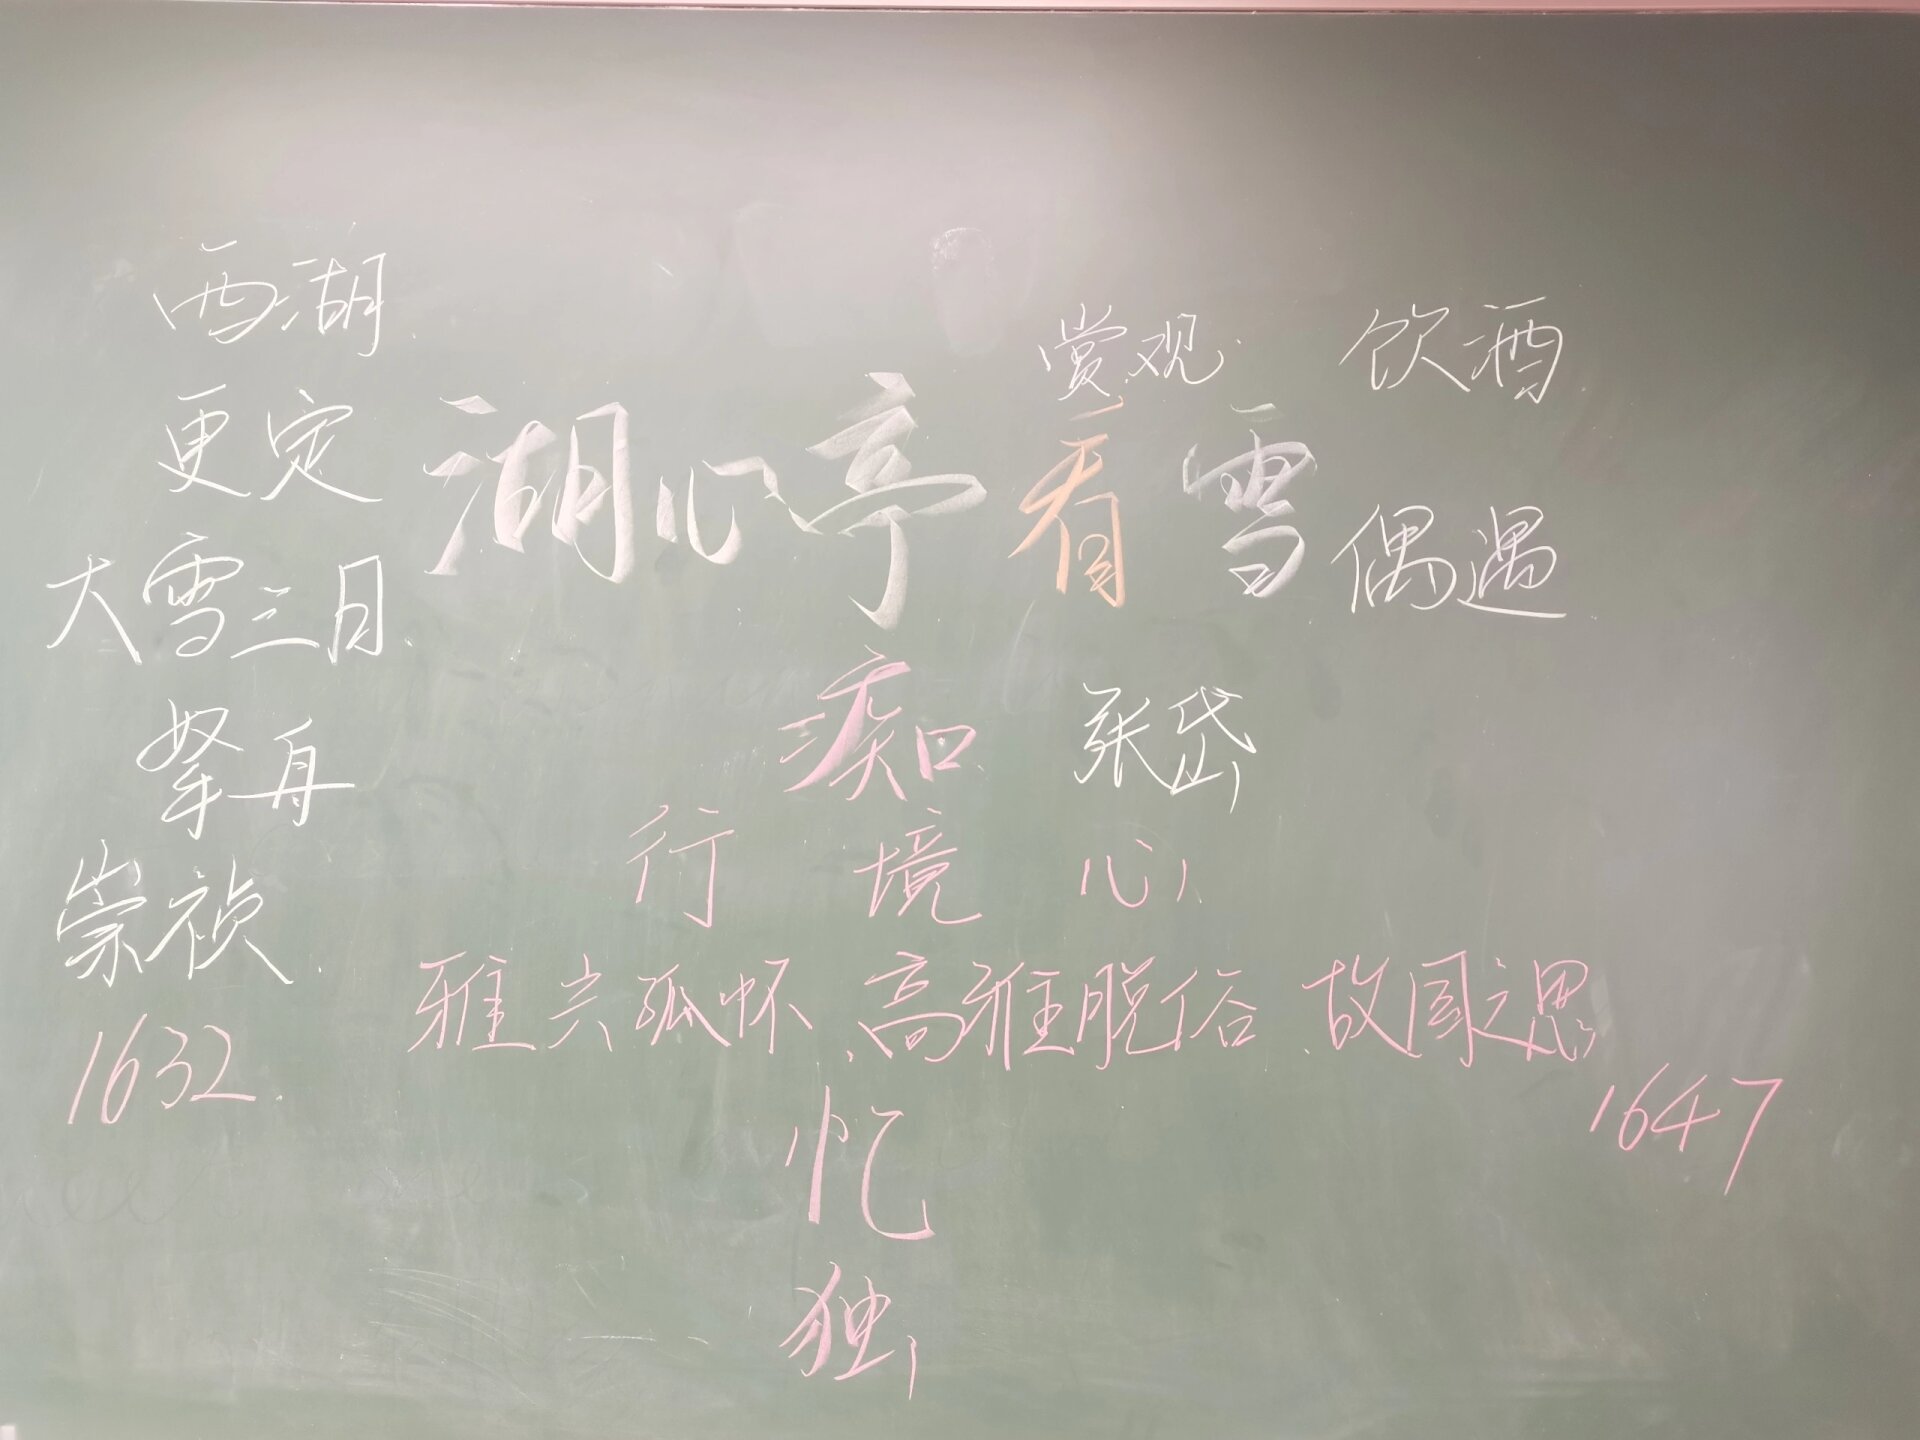 西湖
更定
大雪三日
拏舟
崇祯
1632
赏观
饮酒
湖心亭看雪
偶遇
痴 张岱
行 境 心
雅兴孤怀、高雅脱俗、故国之思
1647
忆
独